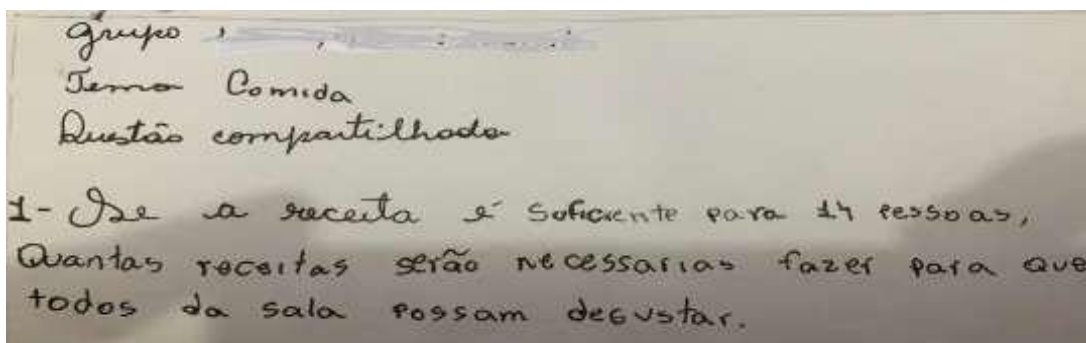 grupo
Tema Comida
Questão compartilhada
1- Se a receita é suficiente para 14 pessoas,
Quantas receitas serão necessarias fazer para que
todos da sala possam degustar.